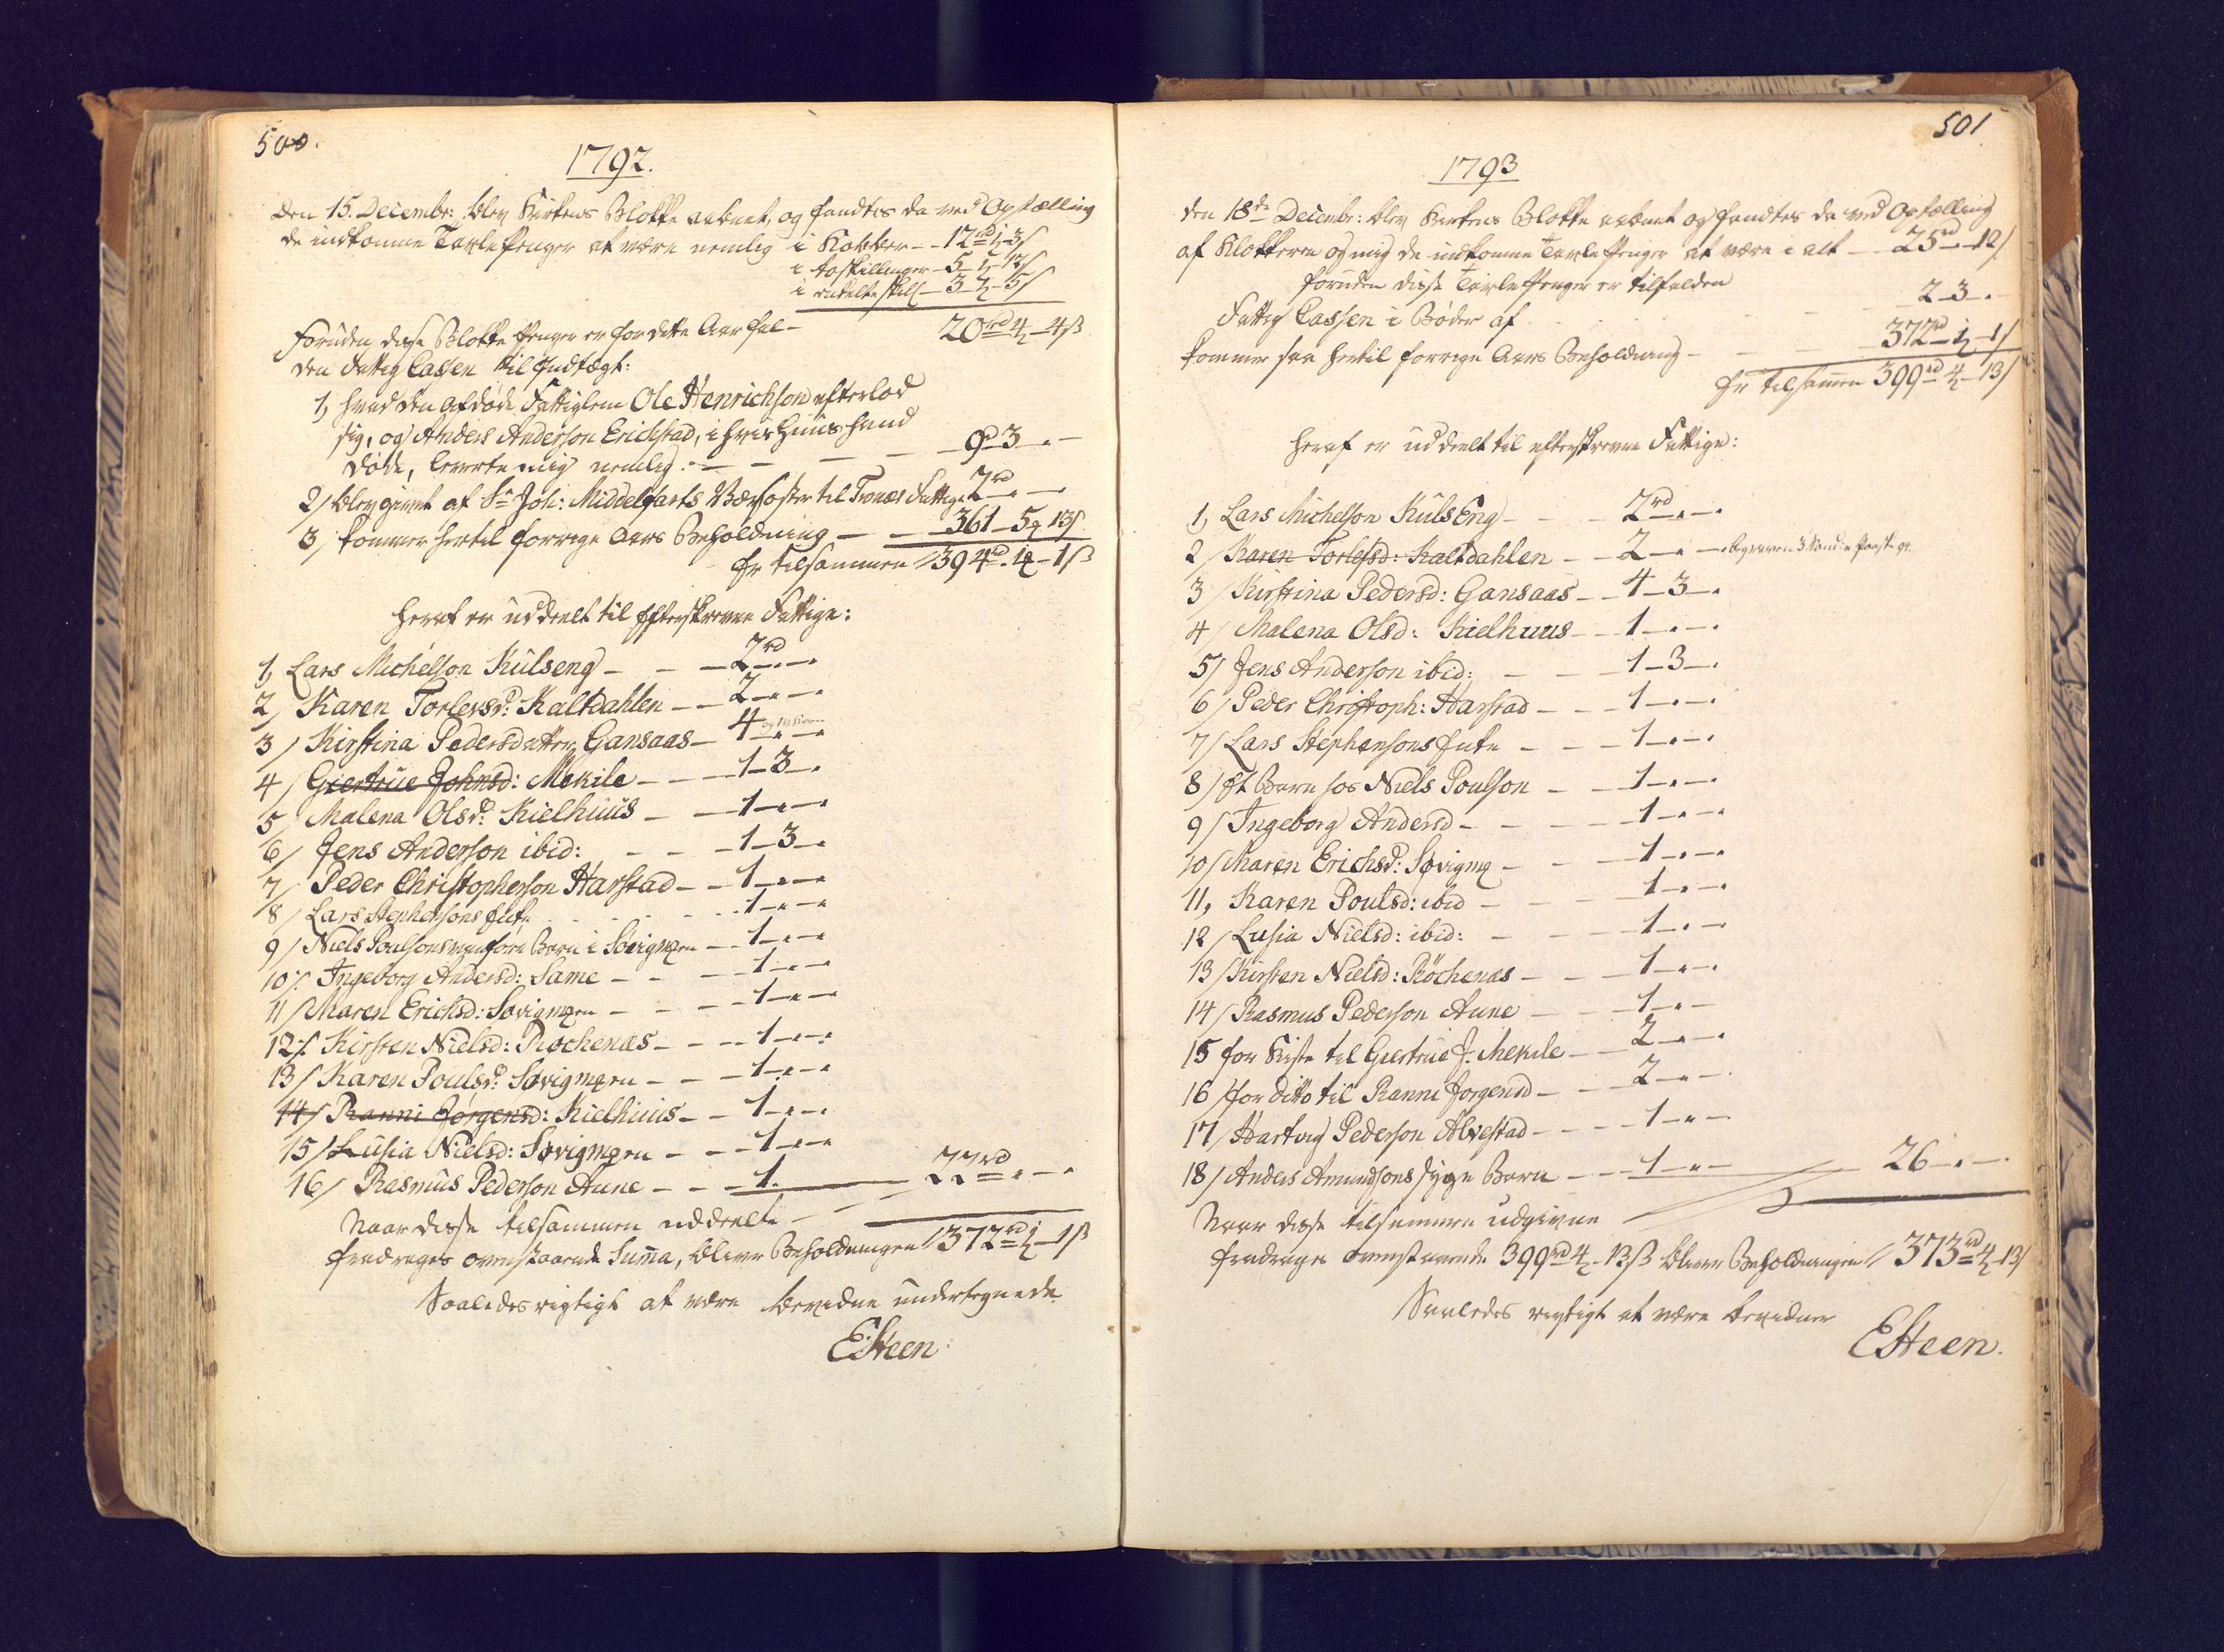 500.
1792.
Den 15. Decembr: blev Kirkens Blokke aabnet, og fandtes da ved Optælling
de indkomne Tavlepenger at være nemlig i Kobber - - 12rd 1 - 3s
i toskillinger - 5 - 1 - 12s
i enkelte skil - 3 - 2 - 5s
20rd 4 - 4ß
Foruden disse Blokke penger er for dette Aar fal-
den Fattig Cassen til Indtægt:
1, hvad den afdøde Fattiglem Ole Henrichson efterlod
sig, og Anders Anderson Erichstad, i hvis Huus hand
døde, leverte mig nemlig - - - 9 - 3 . -
2/ blev givet af Sr Joh: Middelfarts til Tronæs Fattige 2rd . -
3/ kommer hertil forrige Aars Beholdning - - 361 - 5 - 13s
Er tilsammen // 394rd 1 - 1ß
Heraf er uddeelt til Efterskrevne Fattige:
1, Lars Michelson Kulseng - - - 2rd . -
2, Karen Torlevsd: Kaltdahlen - - 2 - . - .
3/ Kirstina Pedersdatter Gansaas - 4 - . -
4/ Giertrue Johnsd: Mekile - - - 1 - 3 - .
5/ Malena Olsd: Kielhuus - - 1 - . - .
6/ Jens Anderson ibid: - - - 1 - 3 - .
7/ Peder Christopherson Harstad - - 1 - . - .
8/ Lars Stephensons Enke - - 1 - . - .
9/ Niels Poulsons vanføre Barn i Søvigmyren - - 1 - . - .
10/. Ingeborg Andersd: Same - - - 1 - . - .
11/ Maren Erichsd: Søvigmyren - - - 1 - . - .
12/. Kirsten Nielsd: Røchenæs - - - 1 - . - .
13/ Karen Poulsd: Søvigmyren - - - 1 - . - .
14/ Ranni Jørgensd: Kielhuus - - 1 - . - .
15/ Lusia Nielsd: Søvigmyren - - - 1 - . - .
16/ Rasmus Pederson Aune - - - 1. 22rd . - .
Naar disse tilsammen uddeelte
fradrages ovenstaaende Summa, bliver Beholdningen // 372rd 1 - 1ß
Saaledes rigtigt at være bevidne undertegnede
ESteen.
501
1793
den 18de Decembr: blev Kirkens Blokke aabnet og fandtes da ved Optælling
af Klokkeren og mig de indkomne Tavlepenger at være i alt - - 25rd - 12s
foruden disse Tavlepenger er tilfalden
Fattig Cassen i Bøder af - - - 2 - 3 - .
kommer saa hertil forrige Aars Beholdning - - 372rd 1 - 1s
Er tilsammen 399rd 4 - 13s
Heraf er uddeelt til efterskrevne Fattige:
1, Lars Michelson KulsEng - - - 2rd . - .
2/ Karen Torlefsd: Kaltdahlen - - 2 - . - .
3/ Kirstina Pedersd: Gansaas - - 4 - 3 - .
4/ Malena Olsd: Kielhuus - - 1 - . - .
5/ Jens Anderson ibid: - - - 1 - 3 - .
6/ Peder Christoph: Harstad - - - 1 - . - .
7/ Lars Stephensons Enke - - - 1 - . - .
8/ Et Barn hos Niels Poulson - - 1 - . - .
9/ Ingeborg Andersd - - - - 1 - . - .
10/ Maren Erichsd: Søvigmy - - - 1 - . - .
11, Karen Poulsd: ibid - - - 1 - . - .
12/ Lusia Nielsd: ibid: - - - 1 - . - .
13/ Kirsten Nielsd: Röchenæs - - - 1 - . - .
14/ Rasmus Pederson Aune - - - 1 - . -
15 for Kiste til Giertrue J: Mekile - - 2 - . - .
16/ for ditto til Ranni Jorgensd - - - 2 - . - .
17/ Hartvig Pederson Alvestad - - - - 1 - . -
18/ Anders Amundsons syge Barn - - - 1 - . - 26 - . - .
Naar disse tilsammen udgivne
fradrages ovenstaaende 399rd 4 - 13ß bliver Beholdningen // 373rd 4 - 13s
Saaledes rigtigt at være bevidner
ESteen.